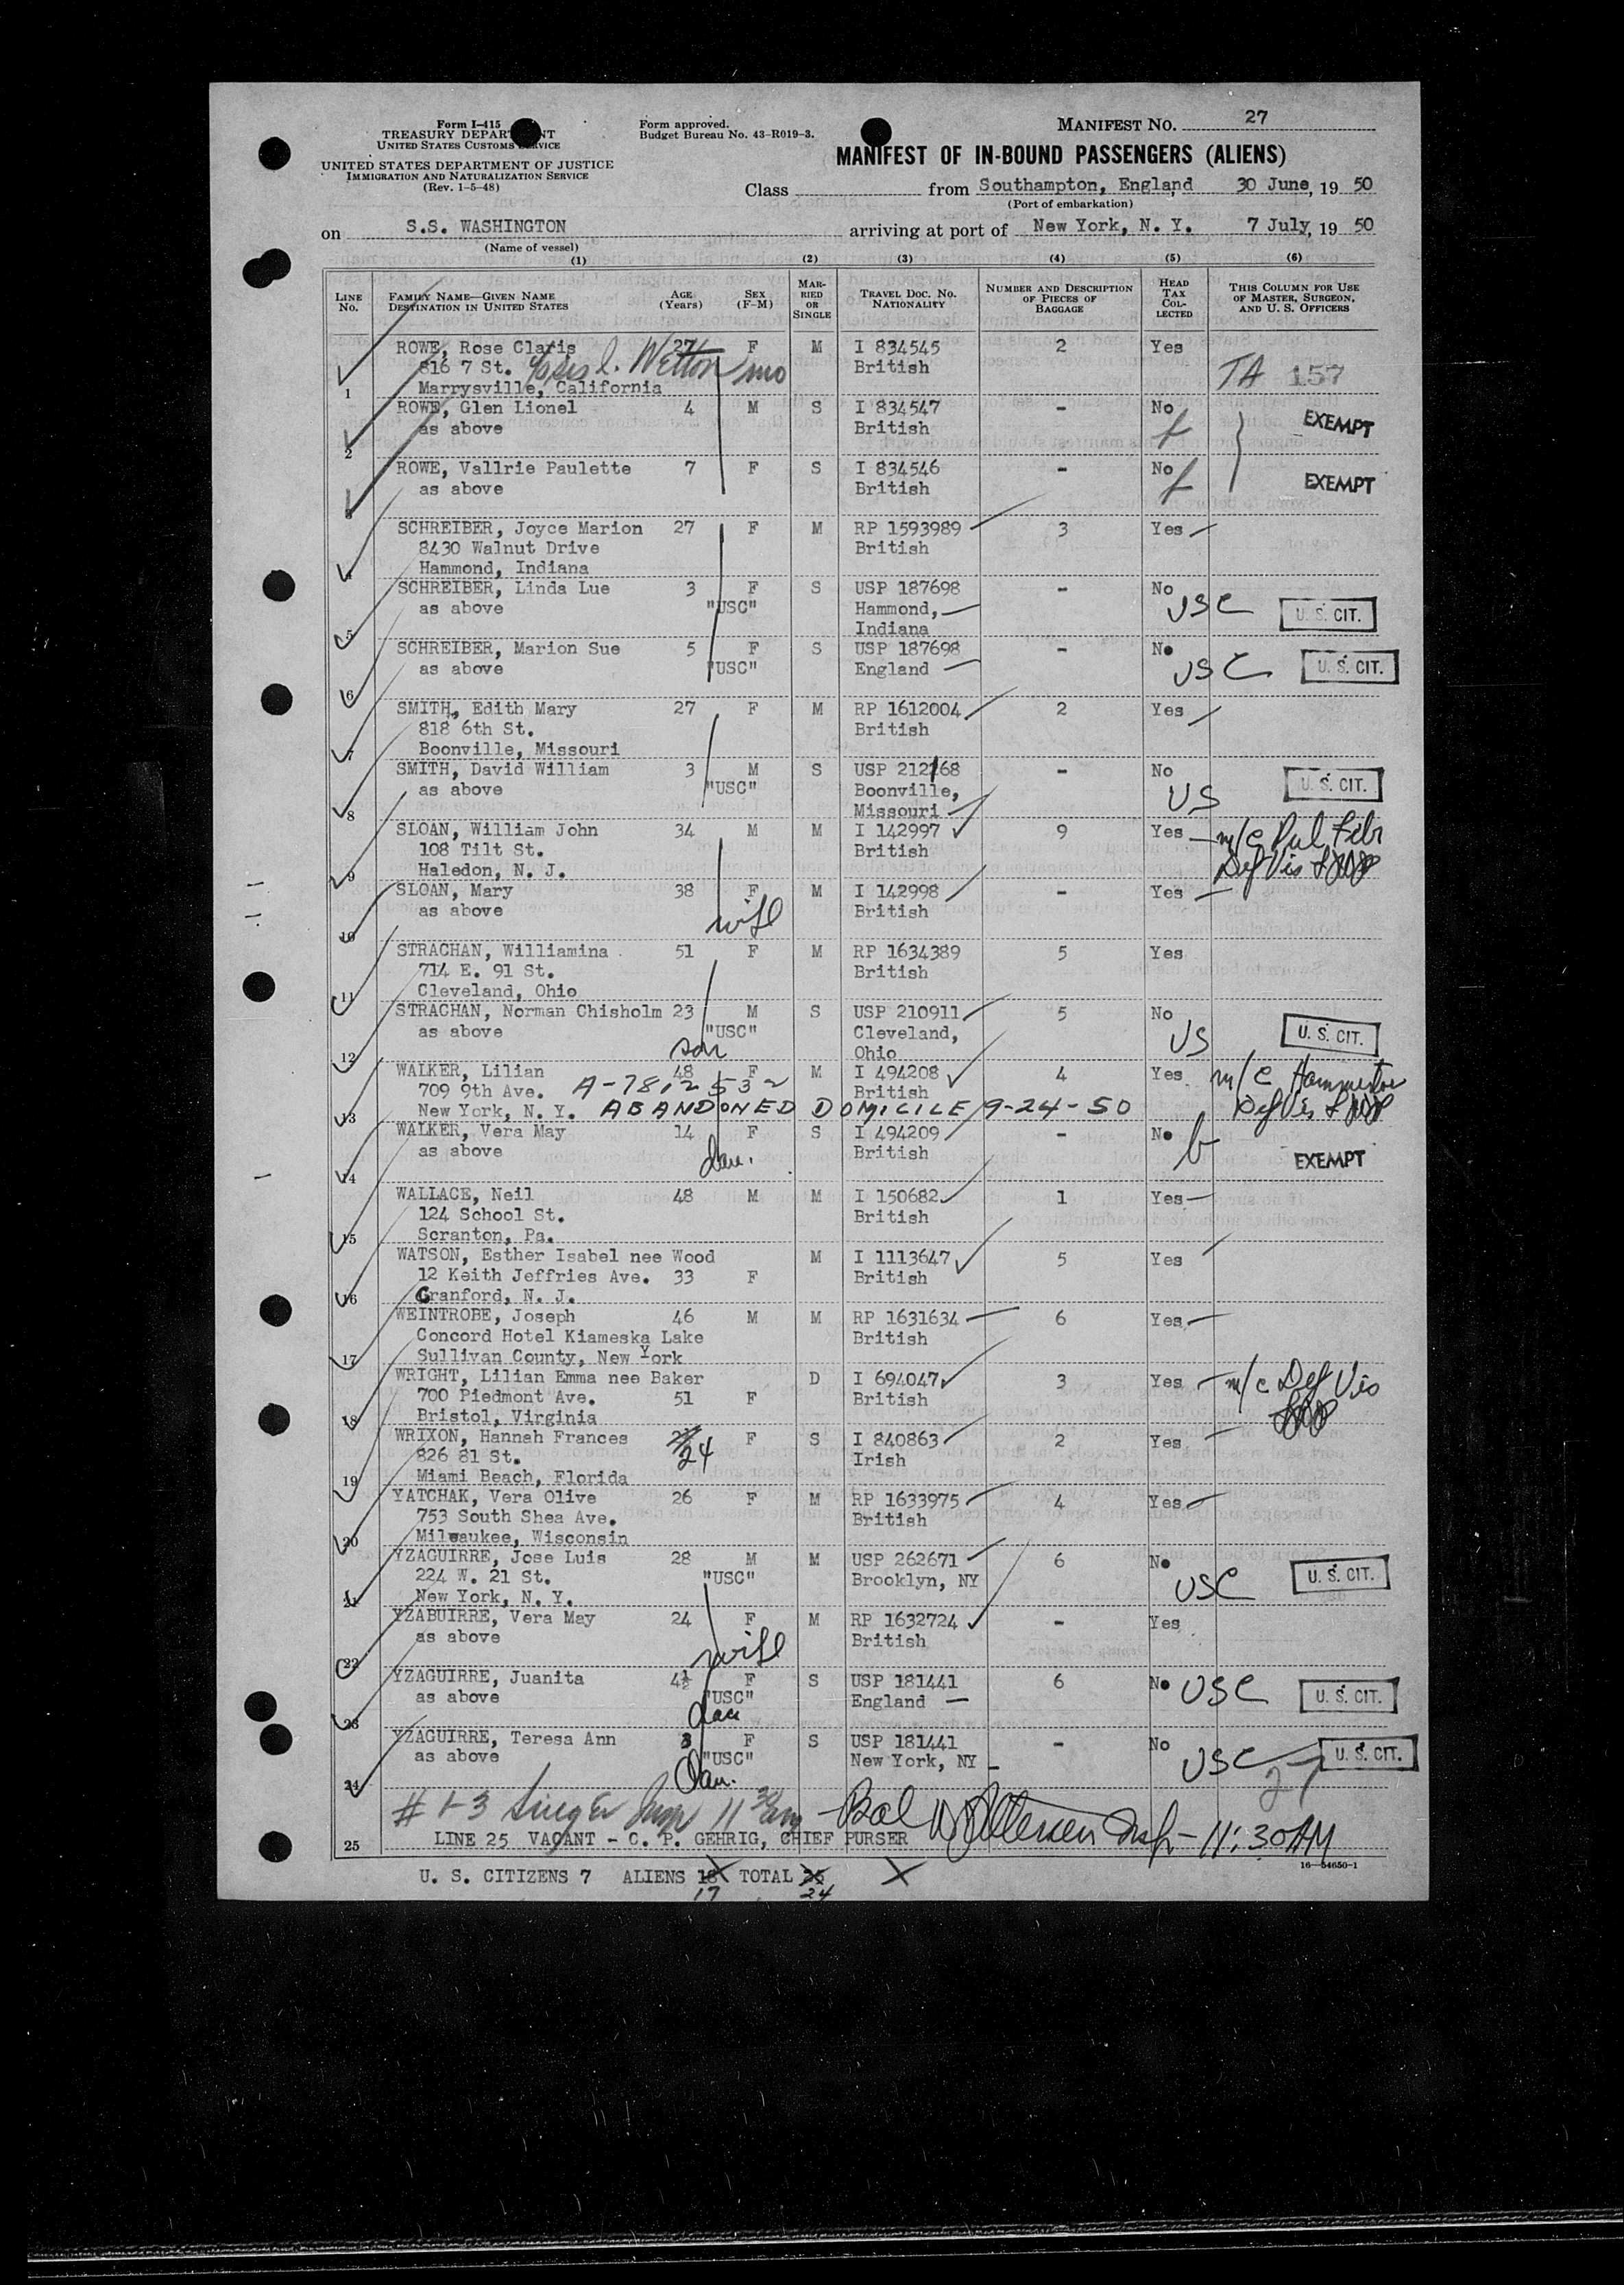 Form I-415
TREASURY DEPARTMENT
UNITED STATES CUSTOMS SERVICE
UNITED STATES DEPARTMENT OF JUSTICE
IMMIGRATION AND NATURALIZATION SERVICE
(Rev. 1-5-48)
Form approved.
Budget Bureau No. 43-R019-3.
MANIFEST No. 27
MANIFEST OF IN-BOUND PASSENGERS (ALIENS)
Class from Southampton, England 30 June, 19 50
(Port of embarkation)
on S.S. WASHINGTON arriving at port of New York, N. Y. 7 July, 19 50
(Name of vessel)
(1) (2) (3) (4) (5) (6)
LINE No. FAMILY NAME—GIVEN NAME DESTINATION IN UNITED STATES AGE (Years) SEX (F-M) MARRIED OR SINGLE TRAVEL DOC. NO. NATIONALITY NUMBER AND DESCRIPTION OF PIECES OF BAGGAGE HEAD TAX COLLECTED THIS COLUMN FOR USE OF MASTER, SURGEON, AND U. S. OFFICERS
ROWE, Rose Claris 27 F M I 834545 2 Yes
816 7 St. Wetton British TA 157
1 Marrysville, California
ROWE, Glen Lionel 4 M S I 834547 - No EXEMPT
as above British
2
ROWE, Vallrie Paulette 7 F S I 834546 - No
as above British EXEMPT
3
SCHREIBER, Joyce Marion 27 F M RP 1593989 3 Yes
8430 Walnut Drive British
4 Hammond, Indiana
SCHREIBER, Linda Lue 3 F S USP 187698 - No
as above "USC" Hammond, USC U. S. CIT.
5 Indiana
SCHREIBER, Marion Sue 5 F S USP 187698 - No
as above "USC" England USC U. S. CIT.
6
SMITH, Edith Mary 27 F M RP 1612004 2 Yes
818 6th St. British
7 Boonville, Missouri
SMITH, David William 3 M S USP 212168 - No
as above "USC" Boonville, US U. S. CIT.
8 Missouri
SLOAN, William John 34 M M I 142997 9 Yes m/c Pul Fibr
108 Tilt St. British Def Vis
9 Haledon, N. J.
SLOAN, Mary 38 F M I 142998 - Yes
as above wife British
10
STRACHAN, Williamina 51 F M RP 1634389 5 Yes
714 E. 91 St. British
11 Cleveland, Ohio
STRACHAN, Norman Chisholm 23 M S USP 210911 5 No
as above "USC" Cleveland, US U. S. CIT.
12 son Ohio
WALKER, Lilian 48 F M I 494208 4 Yes m/c Hammertoe
709 9th Ave. A-7812532 British Def Vis
13 New York, N. Y. ABANDONED DOMICILE 9-24-50
WALKER, Vera May 14 F S I 494209 - No
as above dau. British EXEMPT
14
WALLACE, Neil 48 M M I 150682 1 Yes
124 School St. British
15 Scranton, Pa.
WATSON, Esther Isabel nee Wood M I 1113647 5 Yes
12 Keith Jeffries Ave. 33 F British
16 Cranford, N. J.
WEINTROBE, Joseph 46 M M RP 1631634 6 Yes
Concord Hotel Kiameska Lake British
17 Sullivan County, New York
WRIGHT, Lilian Emma nee Baker D I 694047 3 Yes m/c Def Vis
700 Piedmont Ave. 51 F British
18 Bristol, Virginia
WRIXON, Hannah Frances 24 F S I 840863 2 Yes
826 81 St. Irish
19 Miami Beach, Florida
YATCHAK, Vera Olive 26 F M RP 1633975 4 Yes
753 South Shea Ave. British
20 Milwaukee, Wisconsin
YZAGUIRRE, Jose Luis 28 M M USP 262671 6 No
224 W. 21 St. "USC" Brooklyn, NY USC U. S. CIT.
21 New York, N. Y.
YZABUIRRE, Vera May 24 F M RP 1632724 - Yes
as above wife British
22
YZAGUIRRE, Juanita 4½ F S USP 181441 6 No USC U. S. CIT.
as above "USC" England
23 dau
YZAGUIRRE, Teresa Ann 3 F S USP 181441 - No
as above "USC" New York, NY USC U. S. CIT.
24 Dau.
# 1-3 11 30 Bal Insp - 11:30AM
25 LINE 25 VACANT - C. P. GEHRIG, CHIEF PURSER
16—54650-1
U. S. CITIZENS 7 ALIENS 18 TOTAL 25
17 24